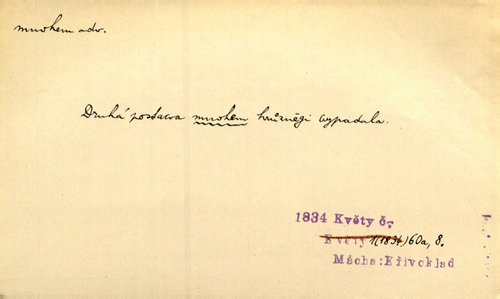 mnohem adv.
Druhá postawa mnohem hrůzněgi wypadala.
1834 Květy č.
Květy 1(1834)60a, 8.
Mácha:Křivoklad